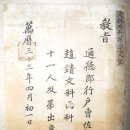 敎旨
通德郎行戶曹佐
趙靖文科丙科
十一人及第出
萬曆三十三年四月初一